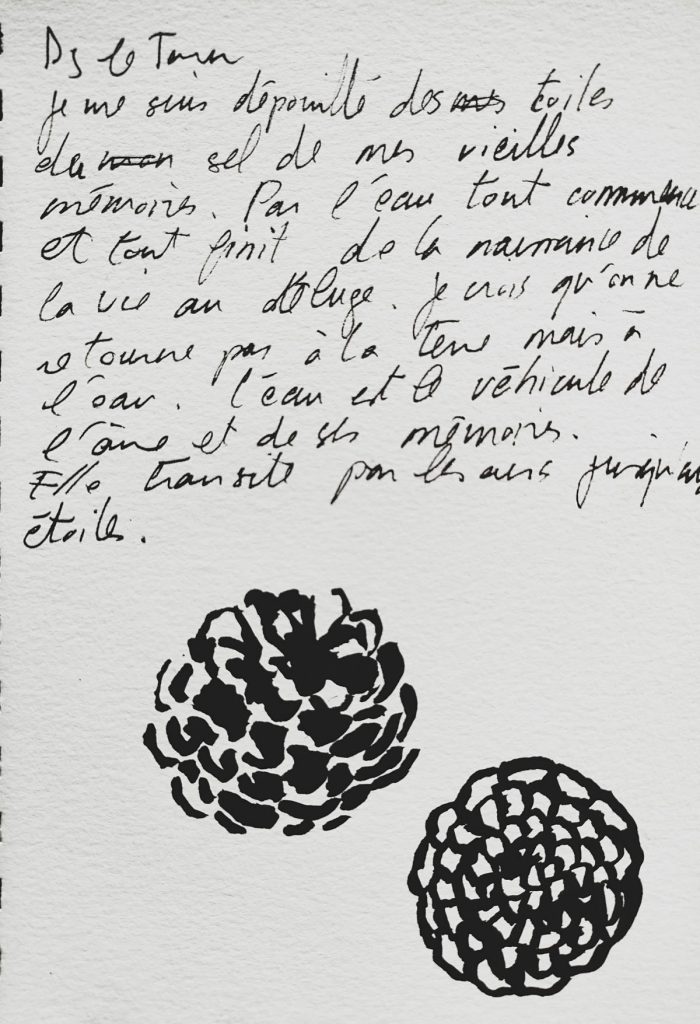 Ds le Tarn
je me suis dépouillé des toiles
du sel de mes vieilles
mémoires. Par l'éau tout commence
et tout finit de la naissance de
la vie au déluge. je crois qu'on ne
retourne pas à la terre mais à
l'éau. l'éau est le véhicule de
l'âme et de ses mémoires.
Elle transite par les airs jusqu'aux
étoiles.